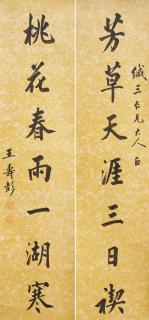 芳草天涯三日禊
織三仁兄大人正
桃花春雨一湖寒
王壽彭